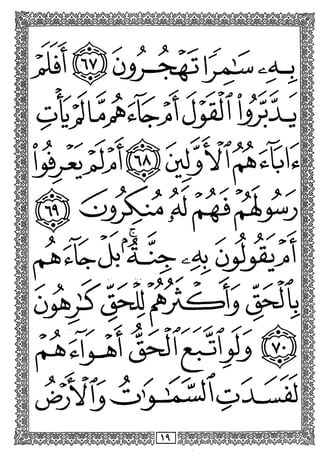 بِهِۦ سَٰمِرًا تَهْجُرُونَ ﴿٦٧﴾ أَفَلَمْ
يَدَّبَّرُوا۟ ٱلْقَوْلَ أَمْ جَآءَهُم مَّا لَمْ يَأْتِ
ءَابَآءَهُمُ ٱلْأَوَّلِينَ ﴿٦٨﴾ أَمْ لَمْ يَعْرِفُوا۟
رَسُولَهُمْ فَهُمْ لَهُۥ مُنكِرُونَ ﴿٦٩﴾
أَمْ يَقُولُونَ بِهِۦ جِنَّةٌۢ ۚ بَلْ جَآءَهُم
بِٱلْحَقِّ وَأَكْثَرُهُمْ لِلْحَقِّ كَٰرِهُونَ
﴿٧٠﴾ وَلَوِ ٱتَّبَعَ ٱلْحَقُّ أَهْوَآءَهُمْ
لَفَسَدَتِ ٱلسَّمَٰوَٰتُ وَٱلْأَرْضُ
١٩